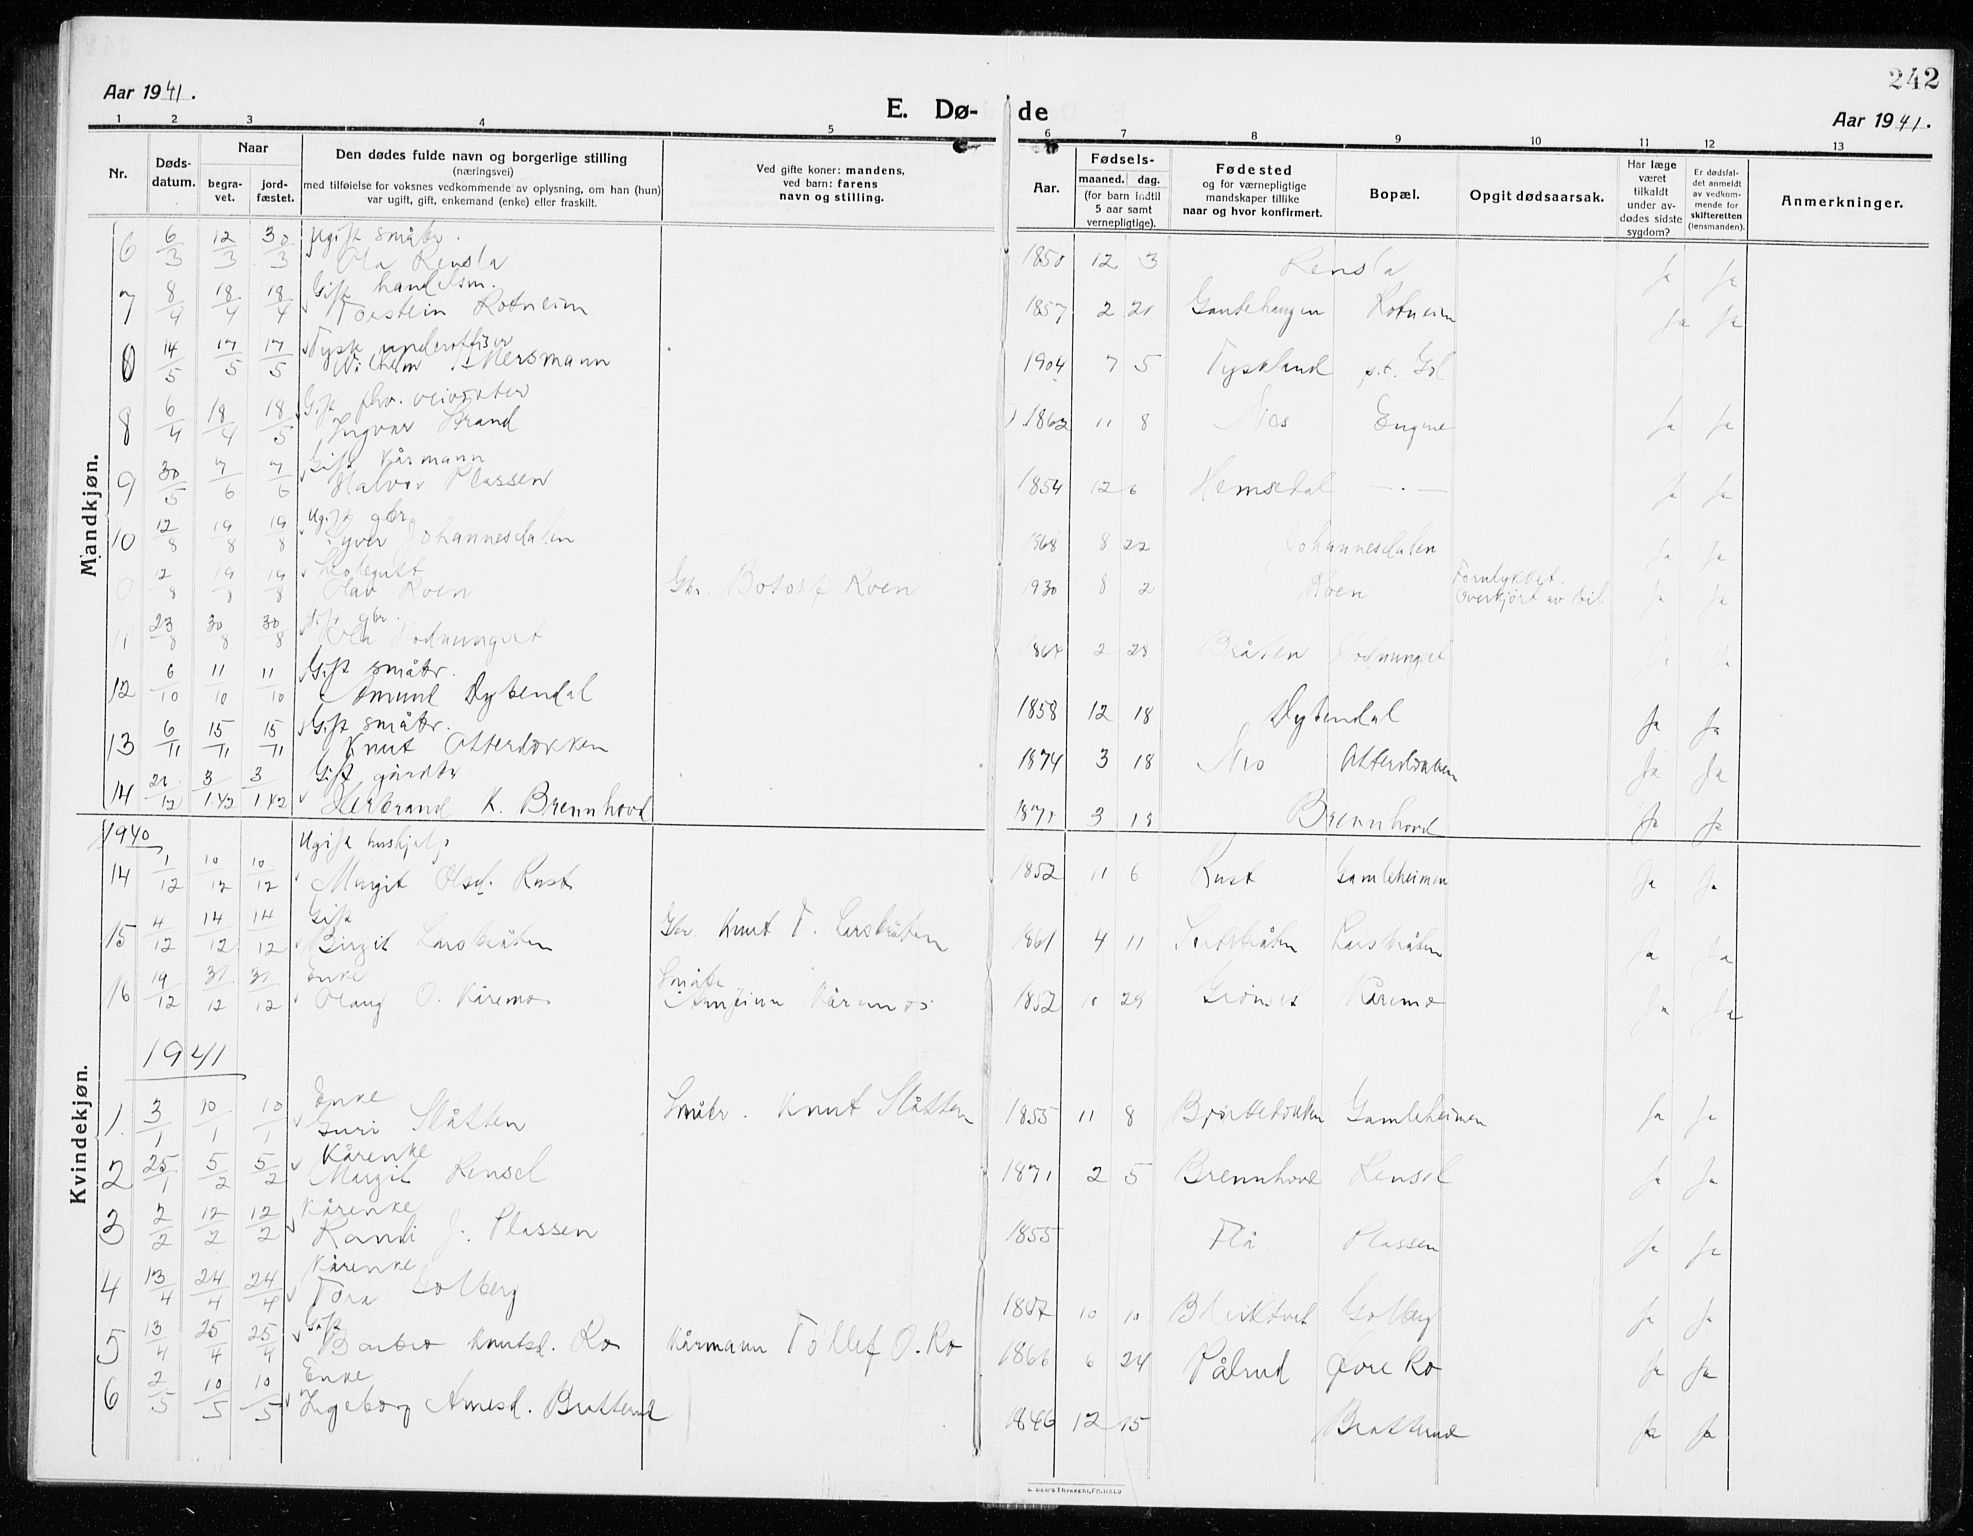 242
Aar 1941.
E. Dø-de
Aar 1941.
1 2 3 4 5 6 7 8 9 10 11 12 13
Nr.
Døds-
datum.
Naar
begra-
vet.
jord-
fæstet.
Den dødes fulde navn og borgerlige stilling
(næringsvei)
med tilføielse for voksnes vedkommende av oplysning, om han (hun)
var ugift, gift, enkemand (enke) eller fraskilt.
Ved gifte koner: mandens,
ved barn: farens
navn og stilling.
Aar.
Fødsels-
maaned. dag.
(for barn indtil
5 aar samt
vernepligtige).
Fødested
og for værnepligtige
mandskaper tillike
naar og hvor konfirmert.
Bopæl.
Opgit dødsaarsak.
Har læge
været
tilkaldt
under av-
dødes sidste
sygdom?
Er dødsfal-
det anmeldt
av vedkom-
mende for
skifteretten
(lensmanden).
Anmerkninger.
Mandkjøn.
Ugift småbr.
6 6/3 12/3 30/3 Ola Rensla 1850 12 3 Rensla Ja Ja
Gift handelsm.
7 8/4 18/4 18/4 Torstein Rotneim 1857 2 21 Rotneim Ja Ja
Tysk underoffiser
0 14/5 17/5 17/5 Wilhelm Mersmann 1904 7 5 Tyskland p.t. Gol
Gift
8 6/4 18/4 18/5 Ingvar Strand 1862 11 8 Nes Engne Ja Ja
Gift Kårmann
9 30/5 7/6 7/6 Halvor Plassen 1854 12 6 Hemsedal — . — Ja Ja
Ugift gbr.
10 12/8 19/8 19/8 Syver Johannesdalen 1868 8 22 Johannesdalen Ja Ja
Skolegutt
0 12/8 19/8 19/8 Olav Roen Gbr. Botolf Roen 1930 8 2 Roen Forulykket. Overkjørt av bil Ja Ja
Gift gbr.
11 23/8 30/8 30/8 Ola 1864 2 28 Bråten
Gift småbr.
12 6/10 11/10 11/10 Amund Dybendal 1858 12 18 Dybendal Ja Ja
Gift småbr.
13 6/11 15/11 15/11 Knut Otterdokken 1874 3 18 Nes Otterdokken Ja Ja
Gift gårdbr
14 3/1.42 3/1.42 Herbrand K. Brennhovd 1871 3 18 Brennhovd Ja Ja
Kvindekjøn.
1940
Ugift hushjelp
14 1/12 10/12 10/12 Margit Olsd. Rust 1852 11 6 Rust Gamleheimen Ja Ja
Gift
15 4/12 14/12 14/12 Birgit Larsbråten Gbr. Knut T. Larsbråten 1861 4 11 Larsbråten Ja Ja
Enke
16 19/12 31/12 31/12 Olaug O. Kåremo Småbr. Kåremo 1852 10 29 Kåremo Ja Ja
1941
Enke
1. 3/1 10/1 10/1 Guri Slåtten Småbr. Knut Slåtten 1855 11 8 Gamleheimen Ja Ja
Kårenke
2 25/1 5/2 5/2 Margit Rensel 1871 2 5 Brennhovd Rensel Ja Ja
Kårenke
3 2/2 12/2 12/2 Randi J. Plassen 1855 Flå Plassen Ja Ja
Kårenke
4 13/4 24/4 24/4 Tora Golberg 1867 10 10 Golberg Ja Ja
Gift
5 13/4 25/4 25/4 Barbro Knutsd. Ro Kårmann Tollef O. Ro 1866 6 24 Pålrud Øvre Ro Ja Ja
Enke
6 2/5 10/5 10/5 Ingeborg Arnesd. Bratterud 1846 12 15 Bratterud Ja Ja